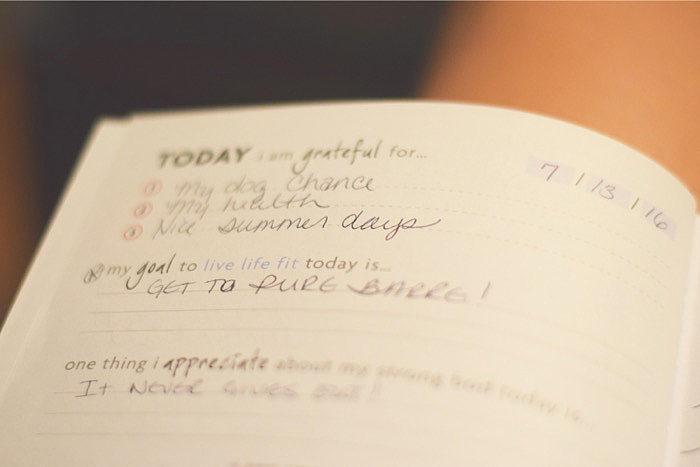 TODAY i am grateful for...
7 / 13 / 16
1 My dog Chance
2 My health
3 Nice summer days
my goal to live life fit today is...
GET TO PURE BARRE!
one thing i appreciate about my strong body today is...
It NEVER GIVES OUT!